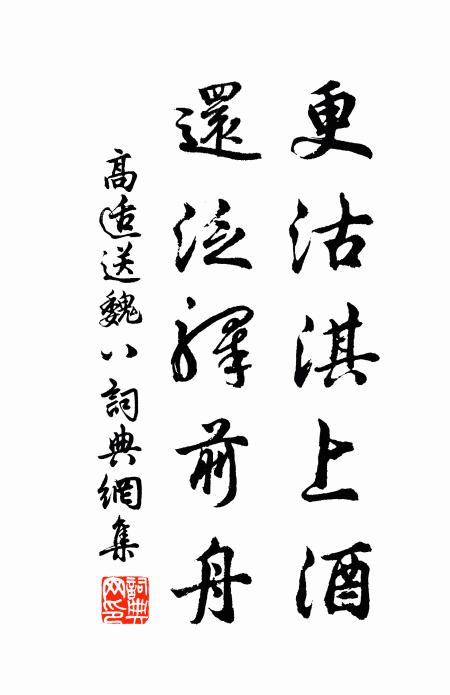 更沽淇上酒
還泛驛前舟
高適送魏八 詞典網集
詞典網印